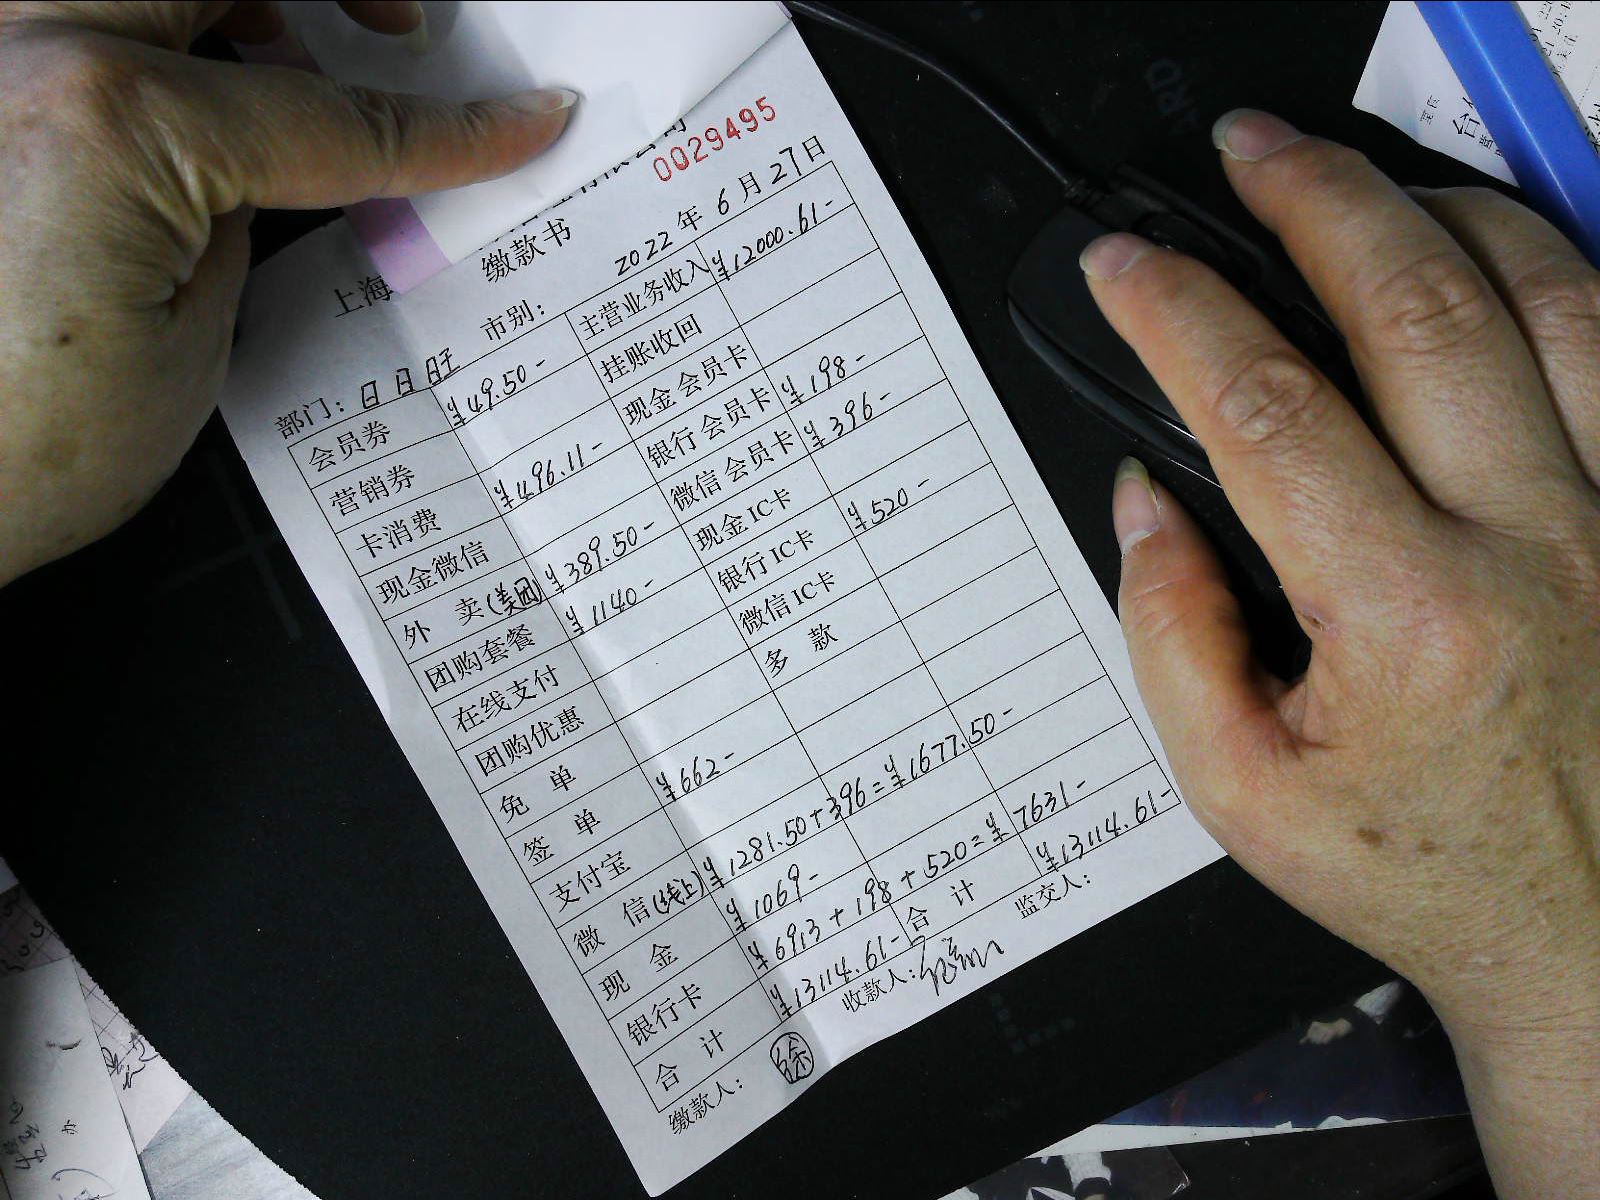 0029495
上海
缴款书
部门：日日旺 市别： 2022年6月27日
会员券 ¥49.50- 主营业务收入 ¥12000.61-
营销券 挂账收回
卡消费 ¥496.11- 现金会员卡
现金微信 银行会员卡 ¥198-
外 卖(美团) ¥389.50- 微信会员卡 ¥396-
团购套餐 ¥1140- 现金IC卡
在线支付 银行IC卡 ¥520-
团购优惠 微信IC卡
免 单 多 款
签 单 ¥662-
支付宝
微 信(线上) ¥1281.50+396=¥1677.50-
现 金 ¥1069-
银行卡 ¥6913+198+520=¥7631-
合 计 ¥13114.61- 合 计 ¥13114.61-
缴款人： 徐 收款人： 监交人：